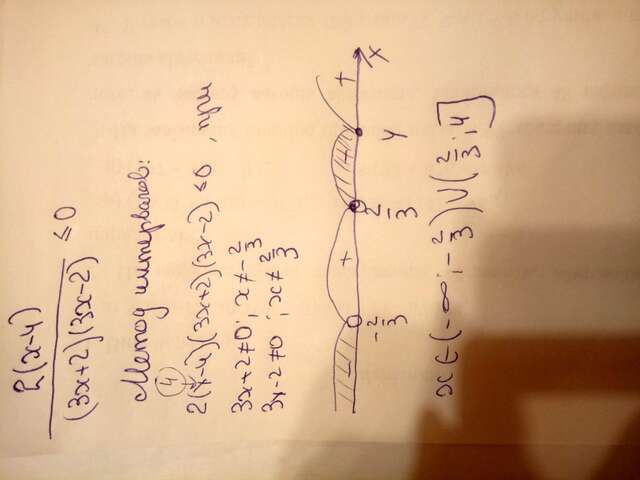 2(x-4)
(3x+2)(3x-2) ≤ 0
Метод интервалов:
4
2(x-4)(3x+2)(3x-2) ≤ 0, при
3x+2≠0; x≠-2/3
3x-2≠0; x≠2/3
- + - + x
-2/3 2/3 4
x∈(-∞;-2/3)∪(2/3;4]